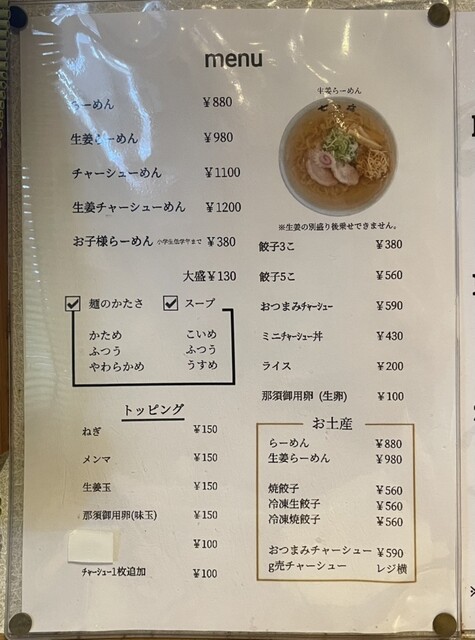 menu
らーめん ¥880
生姜らーめん ¥980
チャーシューめん ¥1100
生姜チャーシューめん ¥1200
お子様らーめん 小学生低学年まで ¥380
大盛¥130
麺のかたさ スープ
かため こいめ
ふつう ふつう
やわらかめ うすめ
トッピング
ねぎ ¥150
メンマ ¥150
生姜玉 ¥150
那須御用卵(味玉) ¥150
¥100
チャーシュー1枚追加 ¥100
生姜らーめん
※生姜の別盛り後乗せできません。
餃子3こ ¥380
餃子5こ ¥560
おつまみチャーシュー ¥590
ミニチャーシュー丼 ¥430
ライス ¥200
那須御用卵 (生卵) ¥100
お土産
らーめん ¥880
生姜らーめん ¥980
焼餃子 ¥560
冷凍生餃子 ¥560
冷凍焼餃子 ¥560
おつまみチャーシュー ¥590
g売チャーシュー レジ横